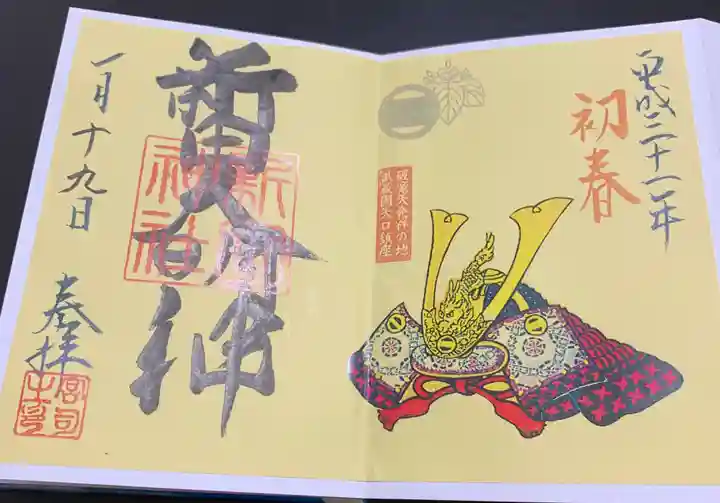 平成三十一年
初春
破魔矢発祥の地
武蔵国矢口鎮座
新田大明神
新田
神社
一月十九日
奉拝
宮司
之印